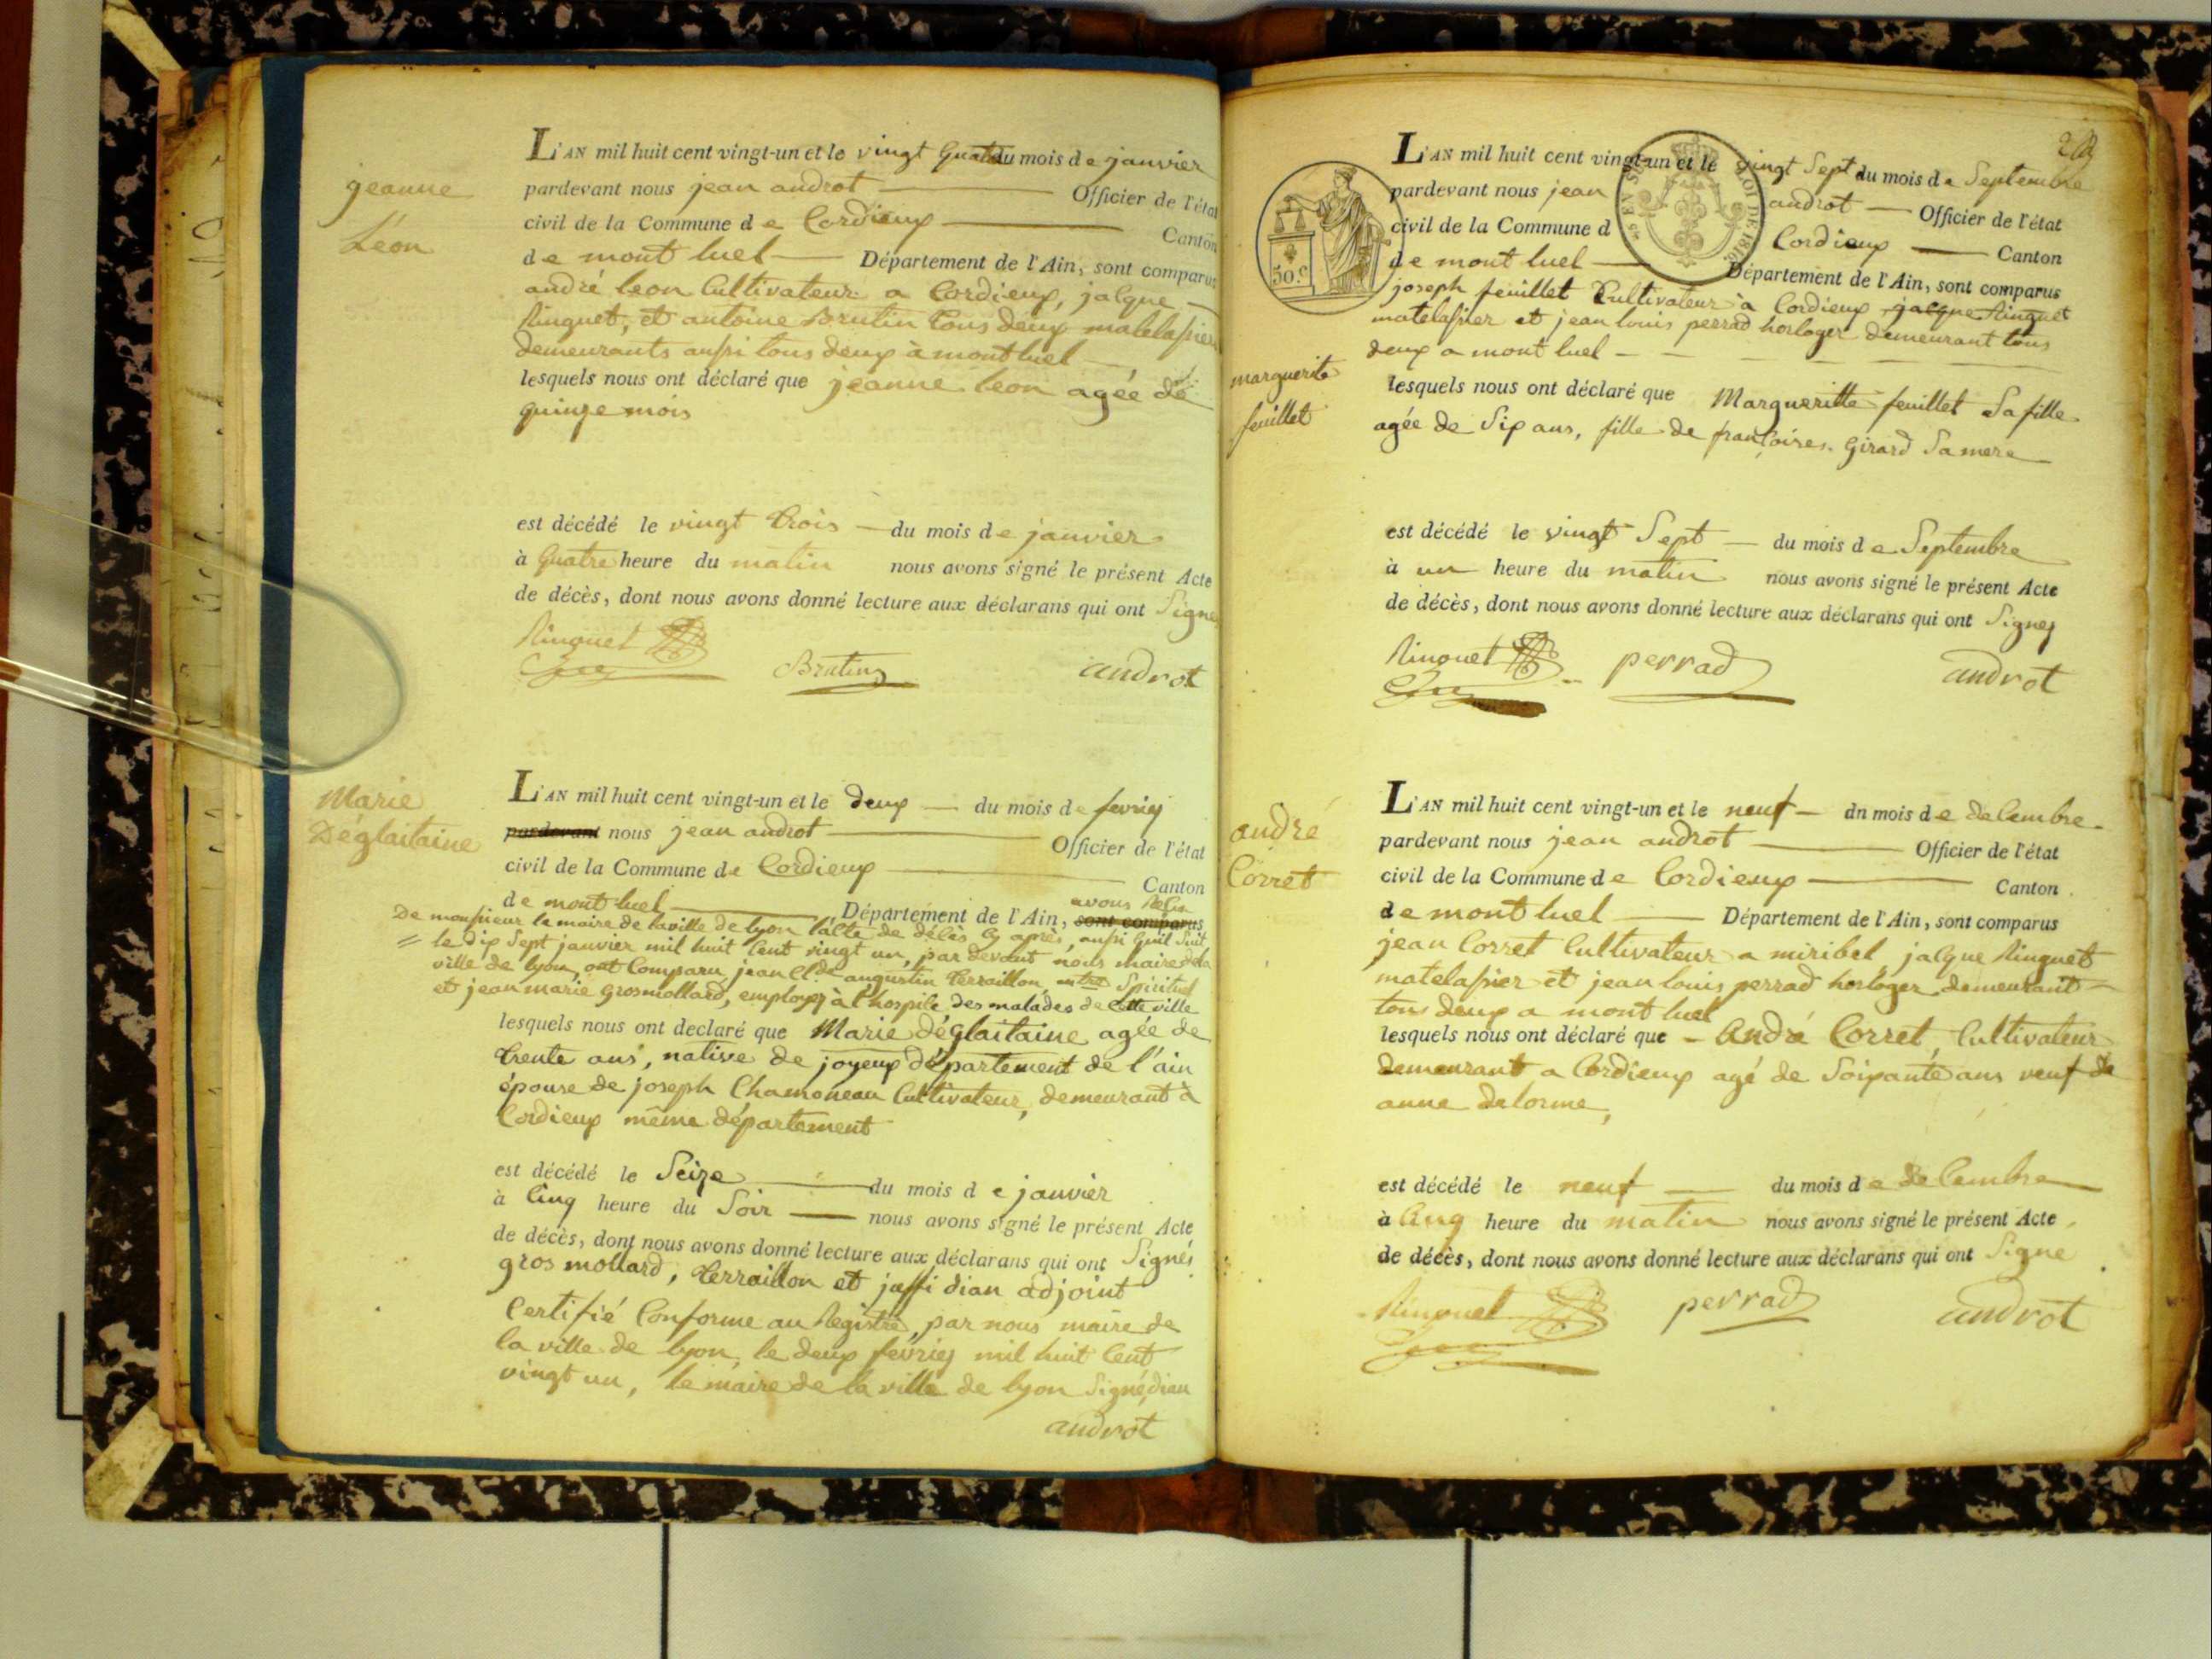 jeanne
Léon
L'AN mil huit cent vingt-un et le vingt quatre du mois de janvier
pardevant nous jean androt Officier de l'état
civil de la Commune de Cordieux Canton
de montluel Département de l'Ain, sont comparus
andré leon Cultivateur a Cordieux, jacque
Ringuet, et antoine Brutin tous deux matelassier
demeurants aussi tous deux à montluel
lesquels nous ont déclaré que jeanne leon agée de
quinze mois
est décédé le vingt trois du mois de janvier
à quatre heure du matin nous avons signé le présent Acte
de décès, dont nous avons donné lecture aux déclarans qui ont Signé
Ringuet Brutin androt
Marie
Déglaitaine
L'AN mil huit cent vingt-un et le deux du mois de fevrier
pardevant nous jean androt Officier de l'état
civil de la Commune de Cordieux Canton
avons Relu
de montluel Département de l'Ain, sont comparus
De monsieur le maire de la ville de lyon l'acte de décès cy après, aussi quil suit
= le dix Sept janvier mil huit Cent vingt un, par devant nous maire de la
ville de lyon, ont Comparu jean Cl.de augustin terraillon, Spirituel
et jean marie grosmollard, employez à l'hospice des malades de Cette ville
lesquels nous ont declaré que Marie déglaitaine agée de
trente ans, native de joyeux département de l'ain
épouse de joseph Chamoneau Cultivateur, demeurant à
Cordieux même département
est décédé le Seize du mois de janvier
à Cinq heure du Soir nous avons signé le présent Acte
de décès, dont nous avons donné lecture aux déclarans qui ont Signés
gros mollard, terraillon et dian adjoint
Certifié Conforme au Registre, par nous maire de
la ville de lyon, le deux fevrier mil huit Cent
vingt un, le maire de la ville de lyon Signé, dian
androt
L'AN mil huit cent vingt-un et le vingt Sept du mois de Septembre
pardevant nous jean androt Officier de l'état
civil de la Commune d Cordieux Canton
50 c.
de montluel Département de l'Ain, sont comparus
joseph feuillet Cultivateur à Cordieux, jacque Ringuet
matelassier et jean louis perrad horloger demeurant tous
deux a montluel
marguerite
feuillet
lesquels nous ont déclaré que Margueritte feuillet Sa fille
agée de Six ans, fille de francoises Girard Sa mere
est décédé le vingt Sept du mois de Septembre
à un heure du matin nous avons signé le présent Acte
de décès, dont nous avons donné lecture aux déclarans qui ont Signez
Ringuet perrad androt
andré
Corret
L'AN mil huit cent vingt-un et le neuf dn mois de decembre
pardevant nous jean androt Officier de l'état
civil de la Commune de Cordieux Canton
de montluel Département de l'Ain, sont comparus
jean Corret Cultivateur a miribel, jacque Ringuet
matelassier et jean louis perrad horloger demeurant
tous deux a montluel
lesquels nous ont déclaré que André Corret, Cultivateur
demeurant a Cordieux agé de Soixante ans veuf de
anne delorme,
est décédé le neuf du mois de decembre
à Cinq heure du matin nous avons signé le présent Acte
de décès, dont nous avons donné lecture aux déclarans qui ont Signe
Ringuet perrad androt